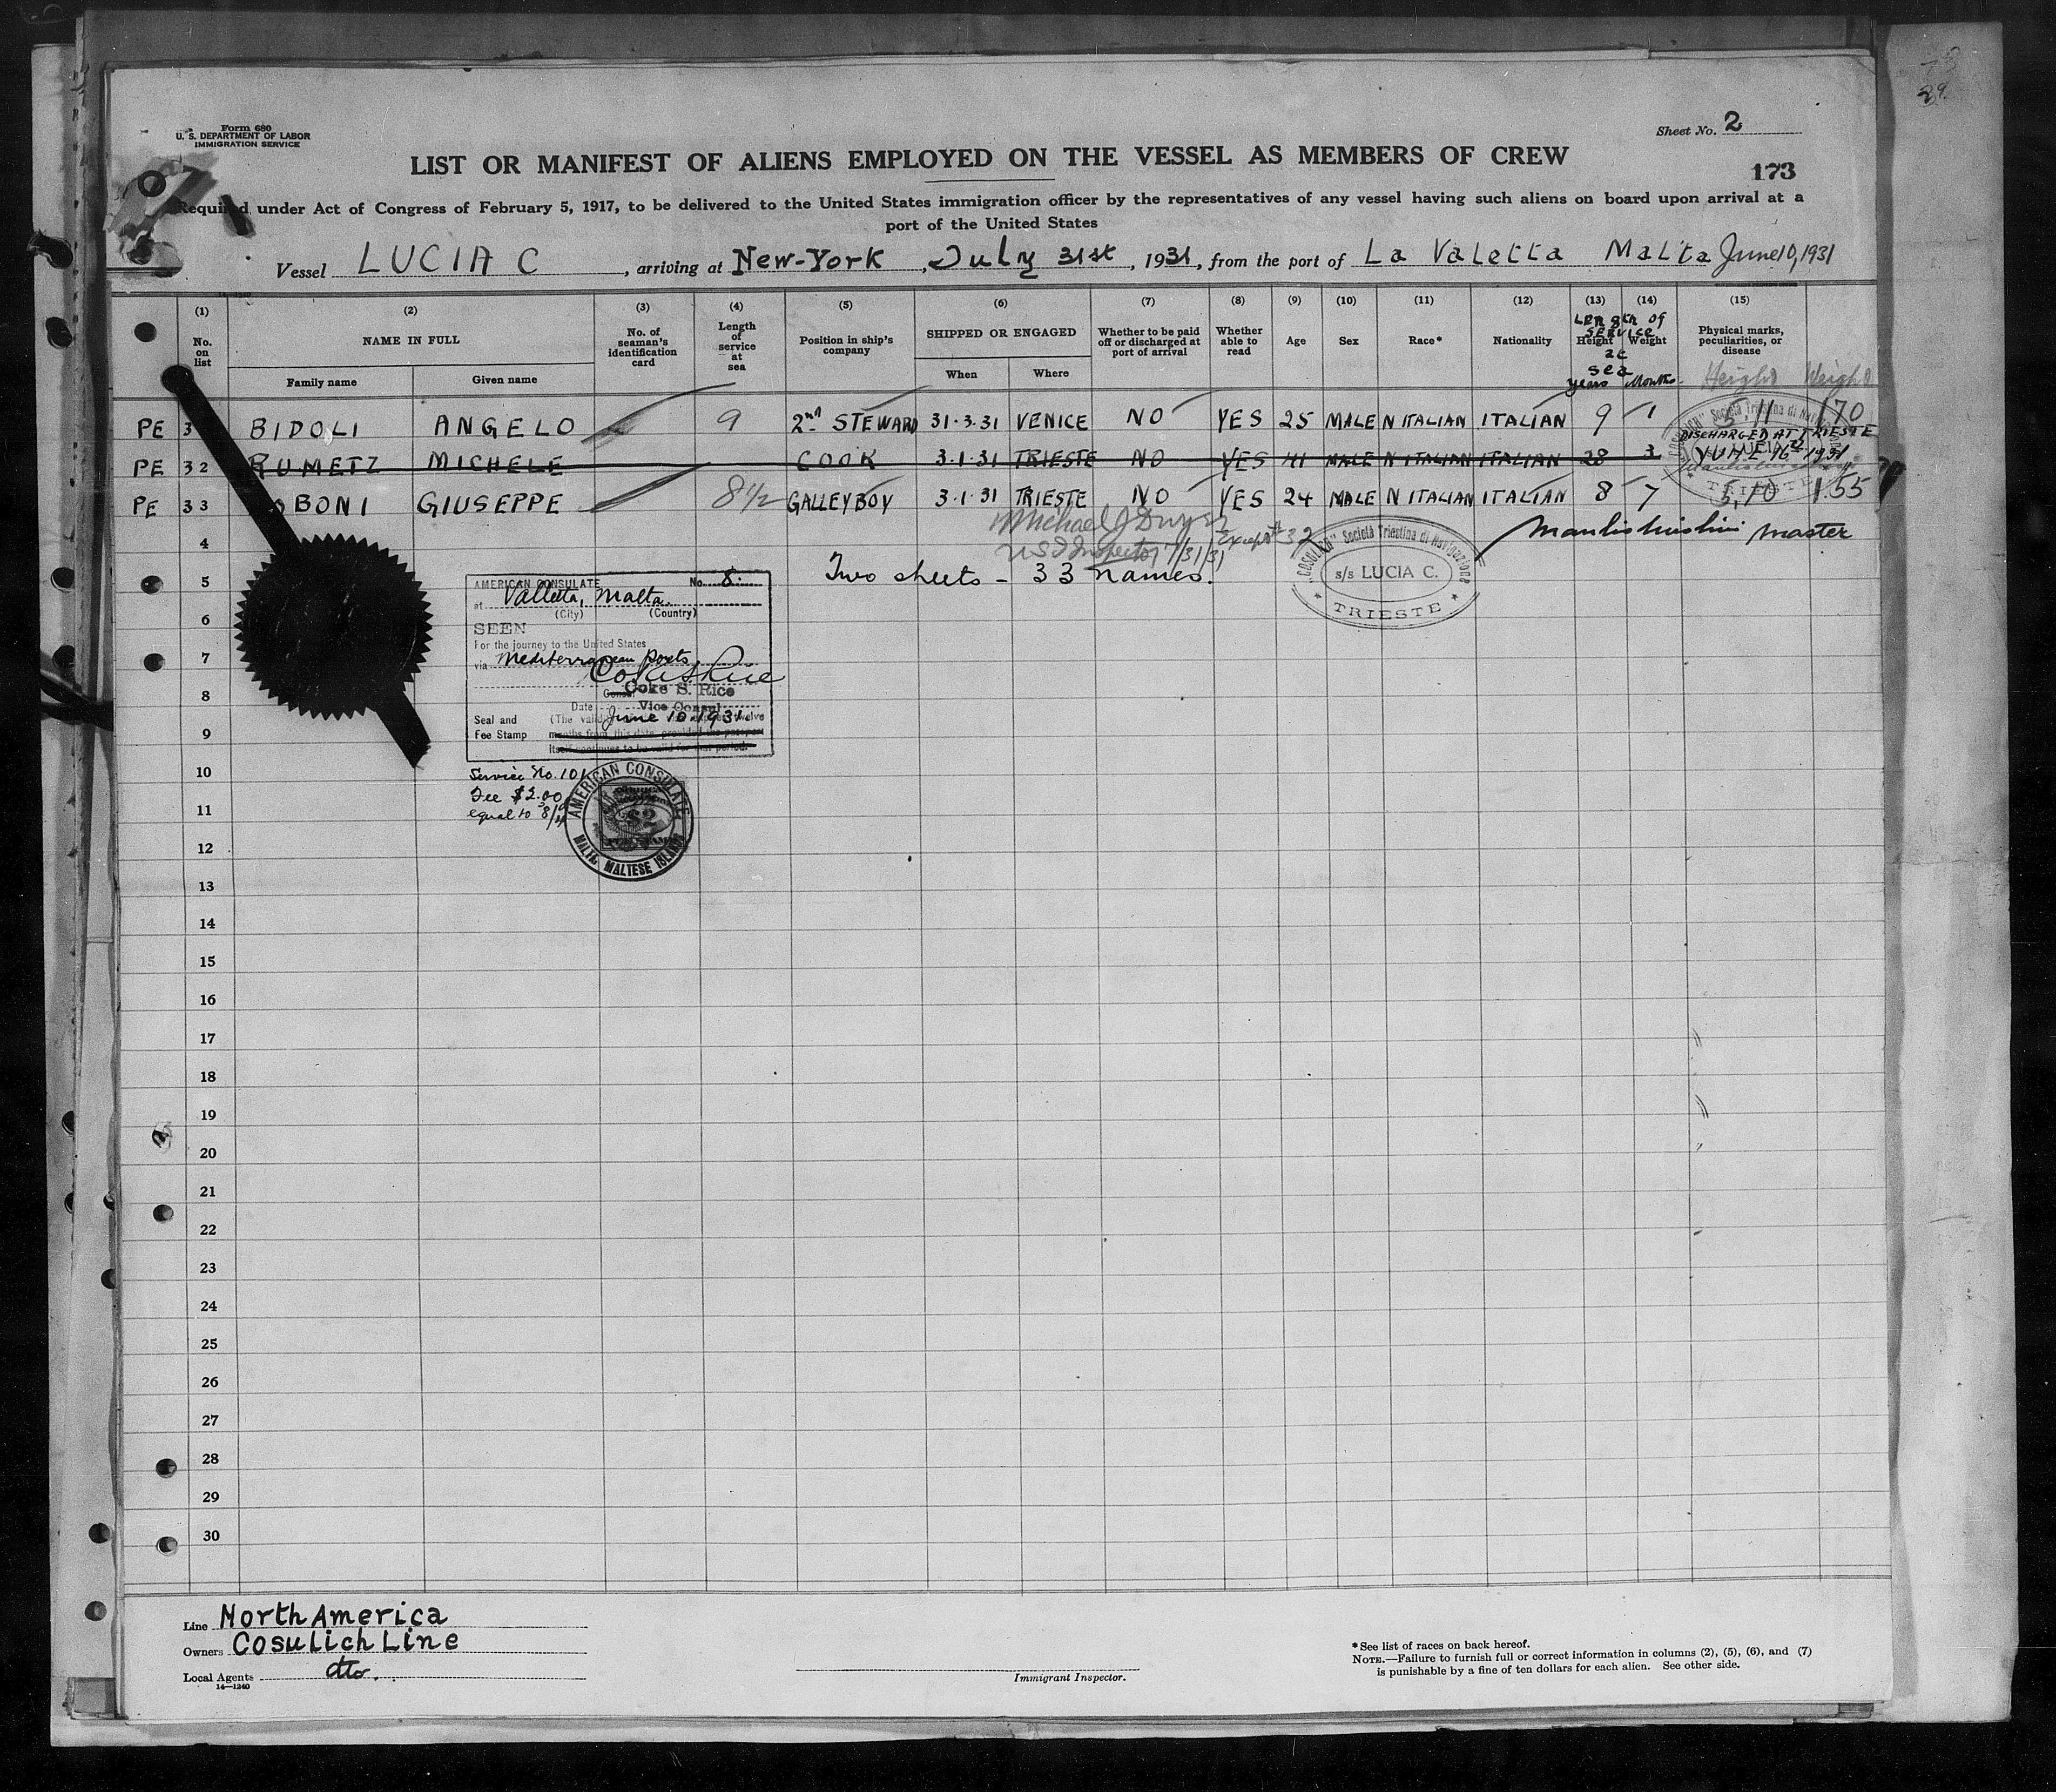 Form 680
U. S. DEPARTMENT OF LABOR
IMMIGRATION SERVICE
Sheet No. 2
LIST OR MANIFEST OF ALIENS EMPLOYED ON THE VESSEL AS MEMBERS OF CREW
173
Required under Act of Congress of February 5, 1917, to be delivered to the United States immigration officer by the representatives of any vessel having such aliens on board upon arrival at a
port of the United States
Vessel LUCIA C, arriving at New-York, July 31st, 1931, from the port of La Valetta Malta June 10, 1931
(1) No. on list
(2) NAME IN FULL
Family name Given name
(3) No. of seaman's identification card
(4) Length of service at sea
(5) Position in ship's company
(6) SHIPPED OR ENGAGED
When Where
(7) Whether to be paid off or discharged at port of arrival
(8) Whether able to read
(9) Age
(10) Sex
(11) Race*
(12) Nationality
(13) Height
(14) Weight
Length of service at sea
years Months
(15) Physical marks, peculiarities, or disease
Height Weight
PE 3 BIDOLI ANGELO 9 2nd STEWARD 31.3.31 VENICE NO YES 25 MALE N ITALIAN ITALIAN 9 1 5 11 170
DISCHARGED AT TRIESTE
PE 32 RUMETZ MICHELE COOK 3.1.31 TRIESTE NO YES 41 MALE N ITALIAN ITALIAN 28 3 JUNE 16th 1931
PE 33 BONI GIUSEPPE 8½ GALLEY BOY 3.1.31 TRIESTE NO YES 24 MALE N ITALIAN ITALIAN 8 7 5,10 155
TRIESTE
Michael J Dwyer
Except #32
US I Inspector 7/31/31
Master
Two sheets - 33 names.
"COSULICH" Società Triestina di Navigazione
s/s LUCIA C.
* TRIESTE *
AMERICAN CONSULATE No. 8.
at Valletta, Malta.
(City) (Country)
SEEN
For the journey to the United States
via Mediterranean ports
Coke S. Rice
Coke S. Rice
Consul
Vice Consul
Date June 10 1931
Seal and
Fee Stamp
(The valid twelve
months from this date, provided the passport
itself continues to be valid for that period.
Service No. 101
Fee $2.00
equal to 8/
AMERICAN CONSULATE
$2
MALTA, MALTESE ISLAND
4
5
6
7
8
9
10
11
12
13
14
15
16
17
18
19
20
21
22
23
24
25
26
27
28
29
30
Line North America
Owners Cosulich Line
Local Agents dto.
14—1240
Immigrant Inspector.
*See list of races on back hereof.
NOTE.—Failure to furnish full or correct information in columns (2), (5), (6), and (7)
is punishable by a fine of ten dollars for each alien. See other side.